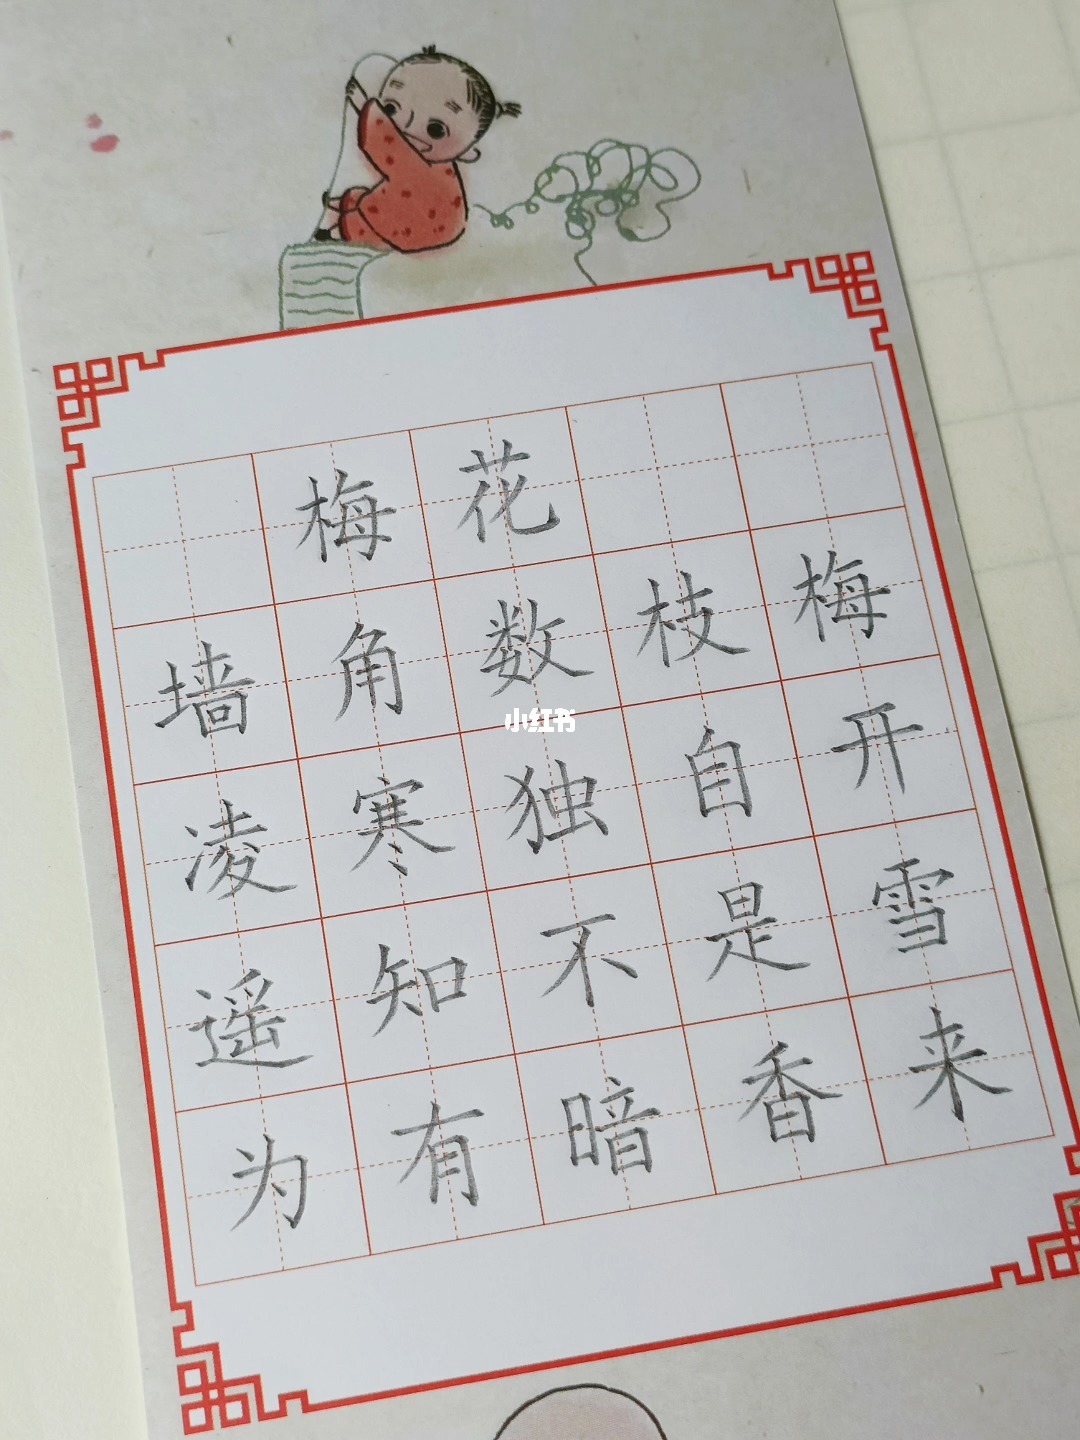 梅花
墙角数枝梅
凌寒独自开
遥知不是雪
为有暗香来
小红书